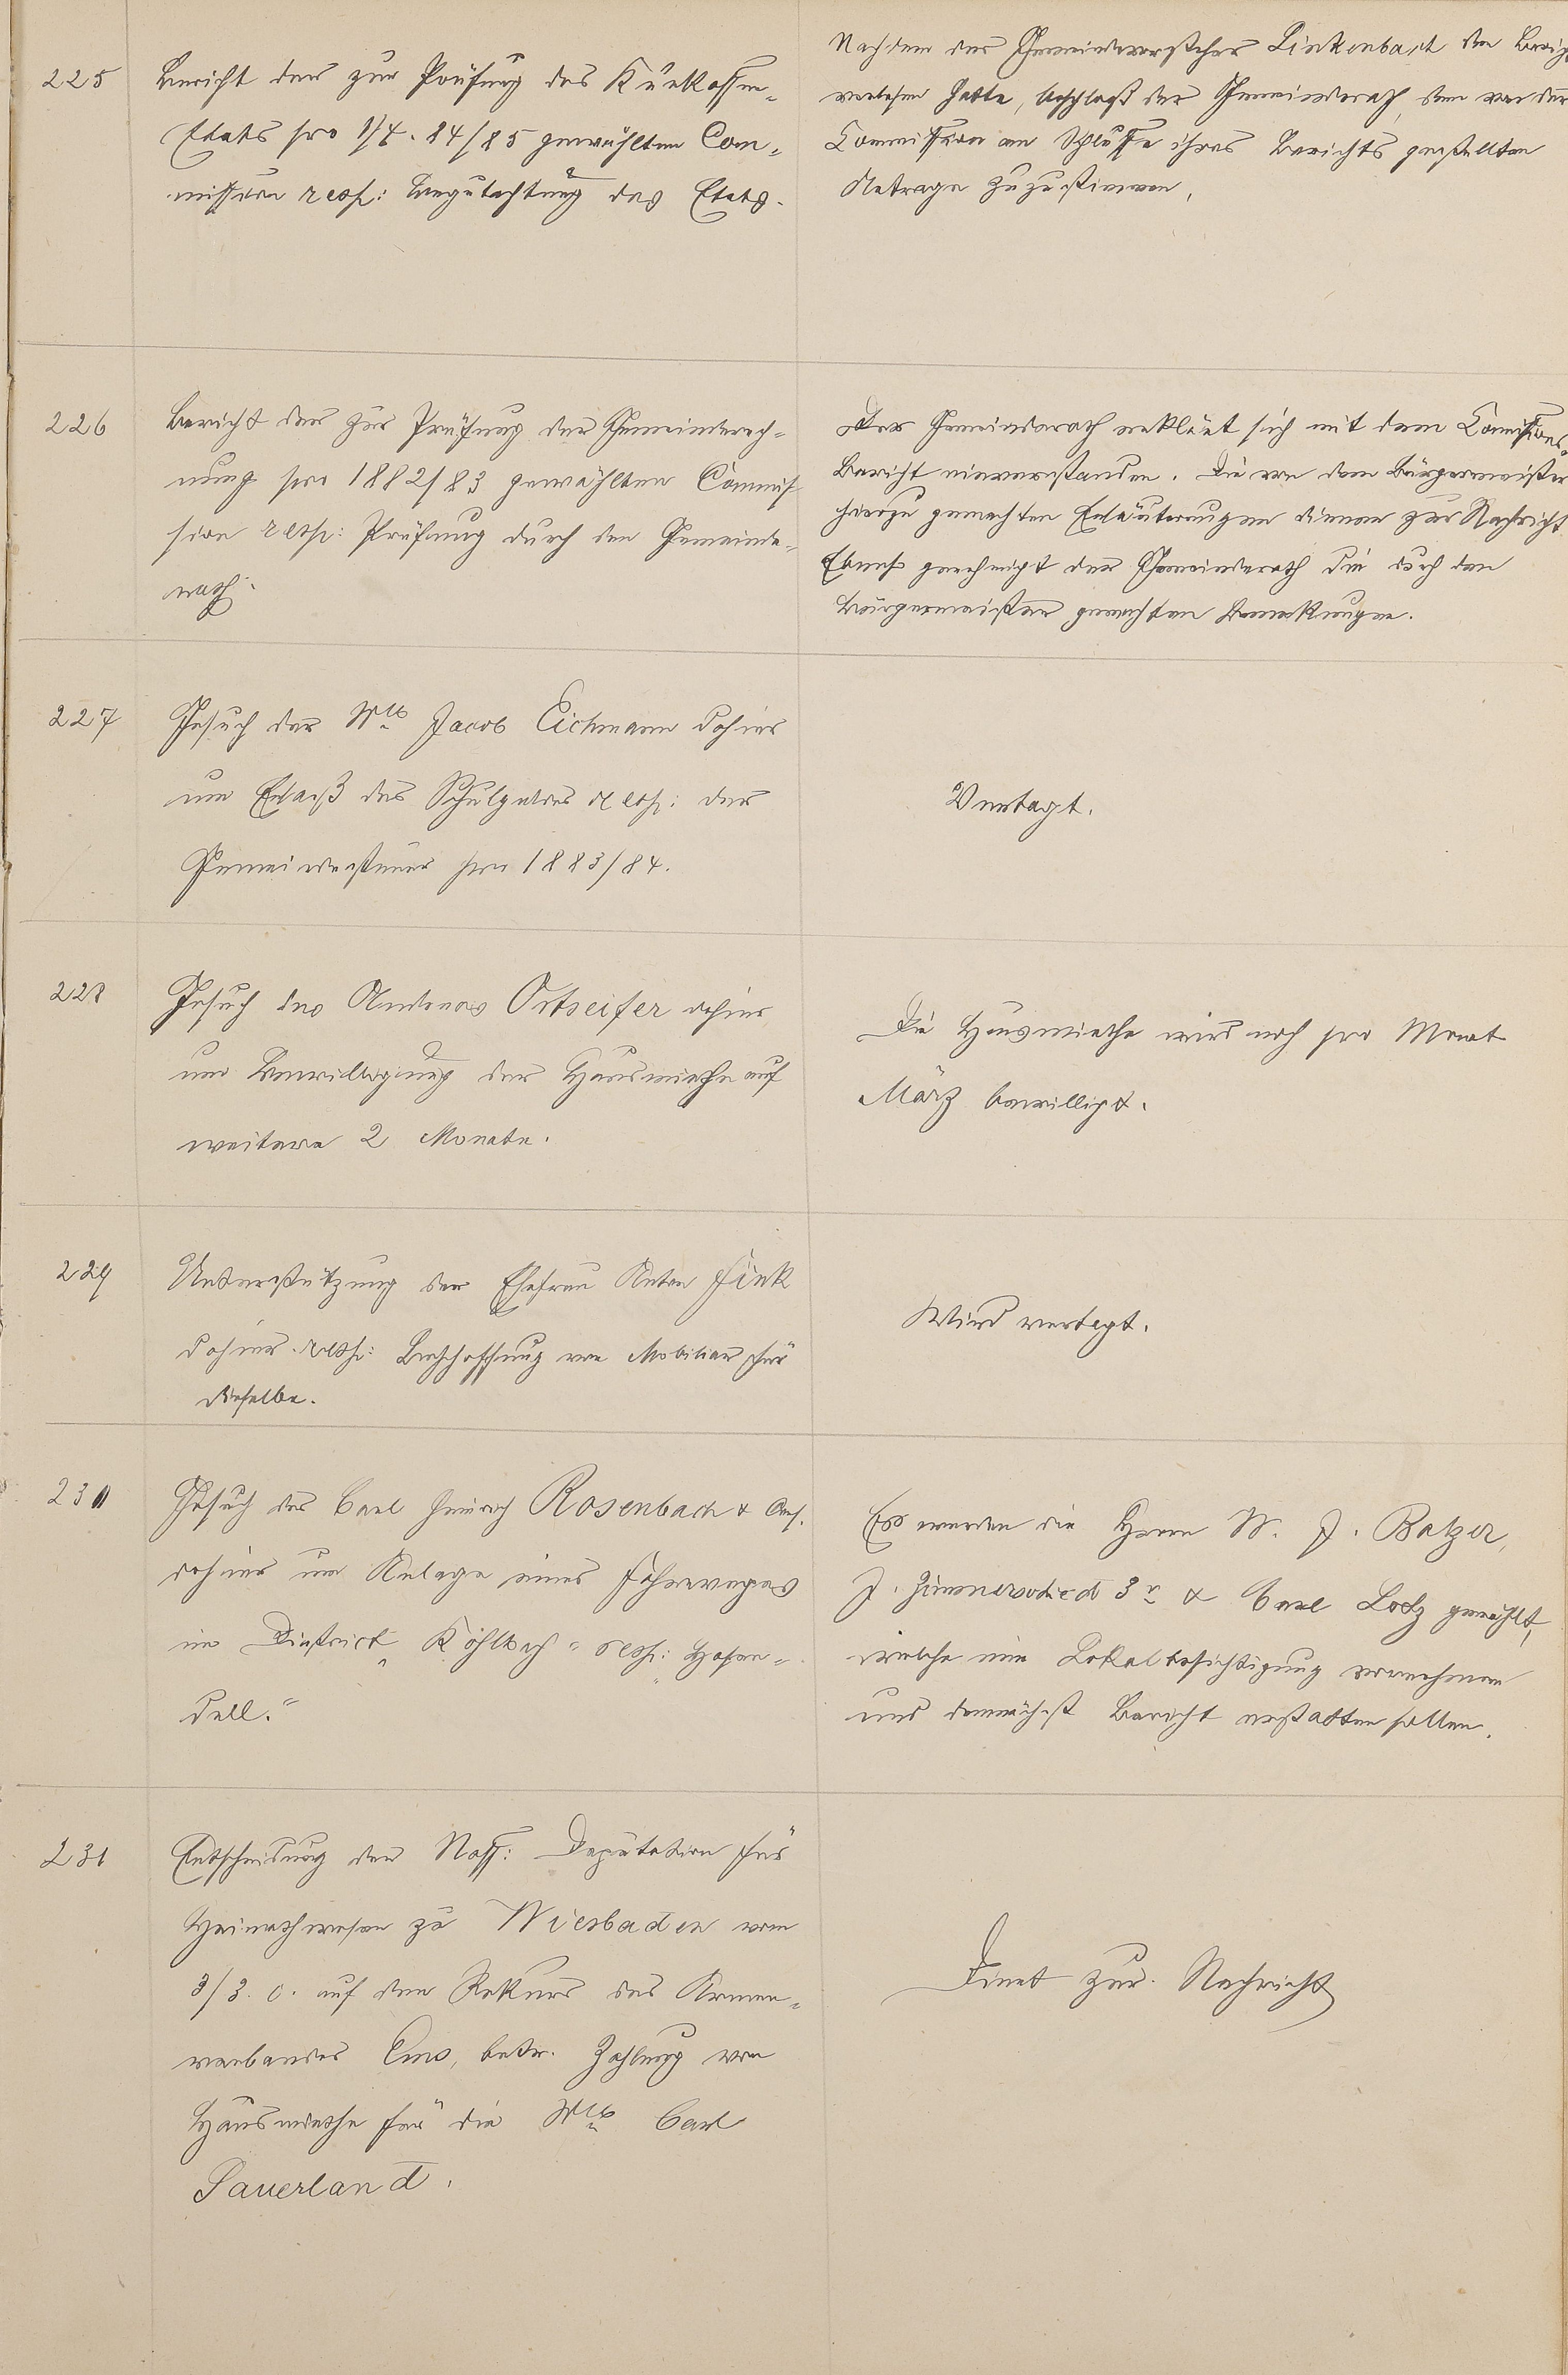 225
Bericht der zur Prüfung des Kurkassen-
Etats pro 1/4. 84/85 gewählten Com-
mission resp: Begutachtung des Etats.
Nachdem der Gemeindevorsteher Linkenbach den
verlesen hatte, beschloß der Gemeinderath, den von der
Commission am Schlusse ihres Berichts gestellten
Antrage zuzustimmen.
226
Bericht der zur Prüfung der Gemeinderech-
nung pro 1882/83 gewählten Commis-
sion resp: Prüfung durch den Gemeinde-
rath.
Der Gemeinderath erklärt sich mit dem Commissions-
Bericht einverstanden. Die von dem Bürgermeister
hierzu gemachten Erläuterungen dienen zur Nachricht
genehmigt der Gemeinderath die durch den
Bürgermeister gemachten Bemerkungen.
227
Gesuch der Wtb Jacob Eichmann dahier
um Erlaß des Schulgeldes resp: der
Gemeindesteuer pro 1883/84.
Vertagt.
228
Gesuch des Andreas Ortseifer dahier
um Bewilligung der Hausmiethe auf
weitere 2 Monate.
Die Hausmiethe wird noch pro Monat
März bewilligt.
229
Unterstützung der Ehefrau Anton Fink
dahier resp: Beschaffung von Mobiliar für
dieselbe.
Wird vertagt.
230
Gesuch des Carl Heinrich Rosenbach & Cons.
dahier um Anlage eines Fahrweges
im District „Köhlbach" resp: „Hasen-
dell."
Es werden die Herren W. J. Balzer,
J. Zimmerschied 3r & Carl Lotz gewählt,
welche eine Lokalbesichtigung vornehmen
und demnächst Bericht erstatten sollen.
231
Entscheidung der Nass: Deputation für
Heimathwesen zu Wiesbaden vom
3/3. c. auf den Rekurs des Armen-
verbandes Ems, betr. Zahlung von
Hausmiethe für die Wtb Carl
Sauerland.
Dient zur Nachricht